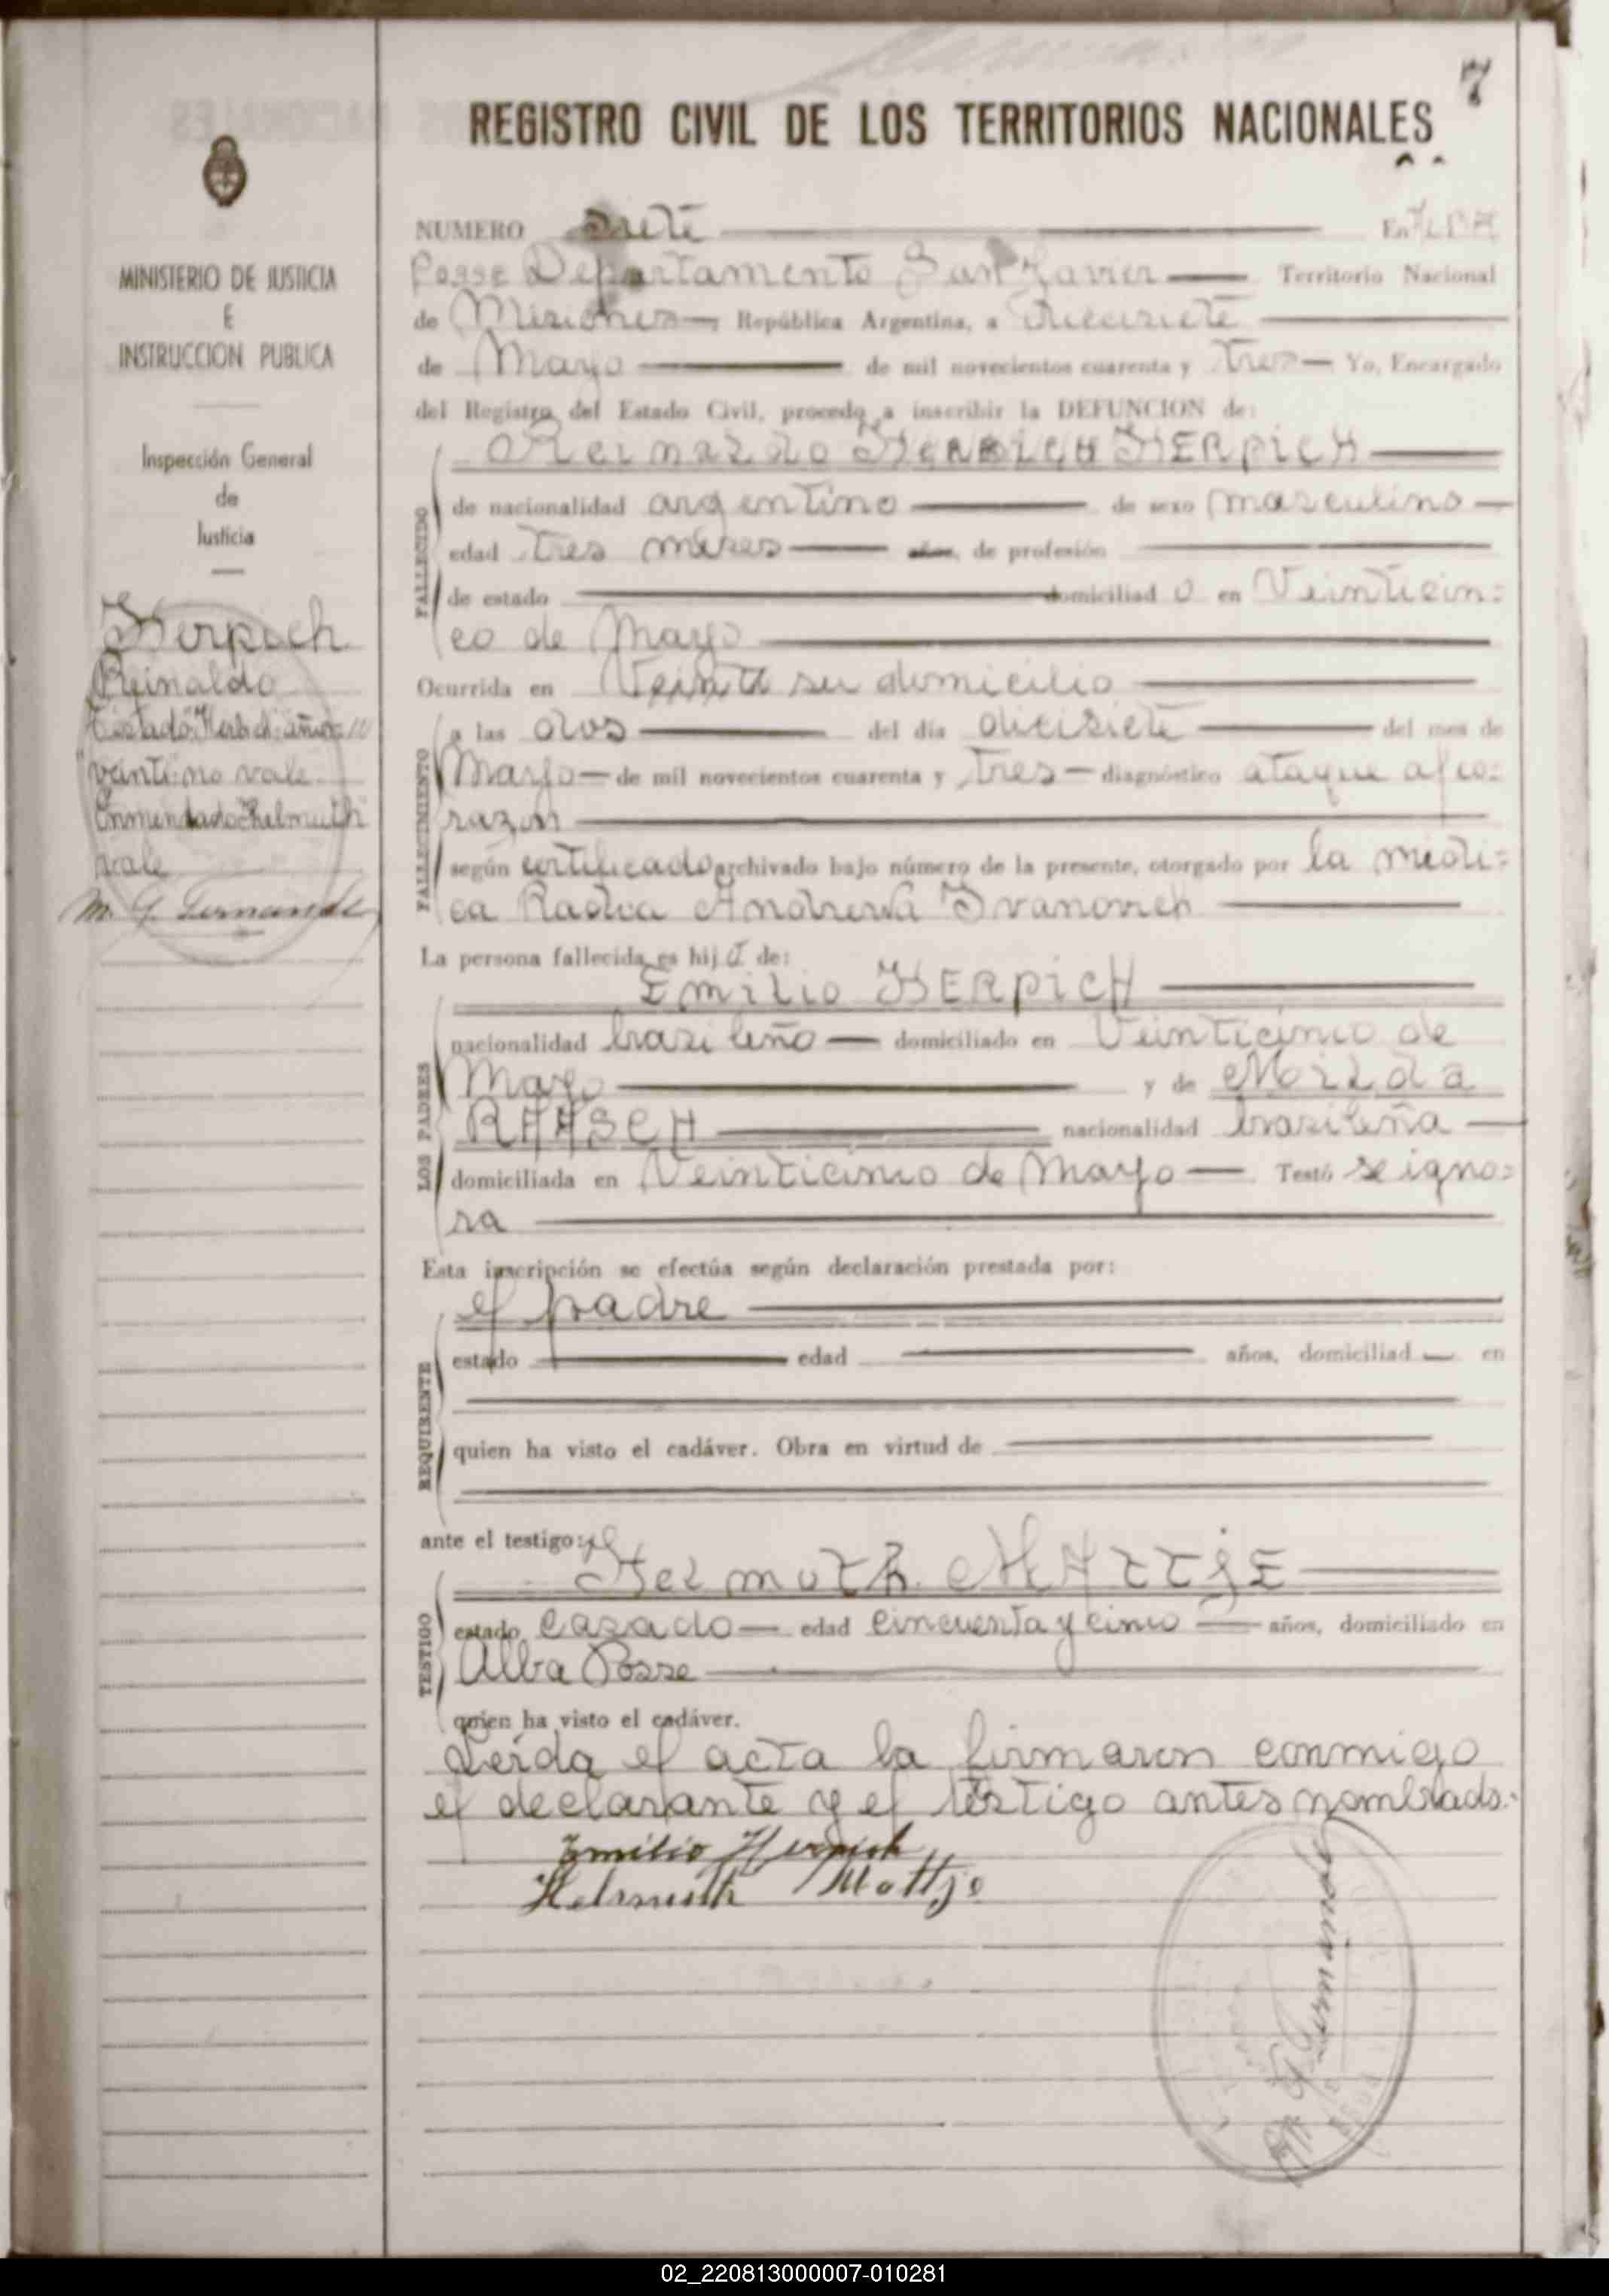 7
REGISTRO CIVIL DE LOS TERRITORIOS NACIONALES
MINISTERIO DE JUSTICIA
E
INSTRUCCION PUBLICA
Inspección General
de
Justicia
Herpich
Reinaldo
Testado: Herbich: años=
veinti: no vale
Enmendado: Helmuth
vale
NUMERO siete En ALBA
Posse Departamento San Javier Territorio Nacional
de Misiones República Argentina, a diecisiete
de Mayo de mil novecientos cuarenta y tres Yo, Encargado
del Registro del Estado Civil, procedo a inscribir la DEFUNCION de:
Reinaldo HERBICH HERPICH
FALLECIDO
de nacionalidad argentino de sexo masculino
edad tres meses años, de profesión
de estado domiciliad o en Veinticin=
co de Mayo
Ocurrida en Veinti su domicilio
FALLECIMIENTO
a las dos del día diecisiete del mes de
Mayo de mil novecientos cuarenta y tres diagnóstico ataque al co=
razon
según certificado archivado bajo número de la presente, otorgado por la médi=
ca Radca Andrewa Ivanovich
La persona fallecida es hij o de:
Emilio HERPICH
LOS PADRES
nacionalidad brasileño domiciliado en Veinticinco de
Mayo y de Milda
RAASCH nacionalidad brasileña
domiciliada en Veinticinco de Mayo Testó se igno=
ra
Esta inscripción se efectúa según declaración prestada por:
el padre
REQUIRENTE
estado edad años, domiciliad en
quien ha visto el cadáver. Obra en virtud de
ante el testigo:
Helmuth MATTJE
TESTIGO
estado casado edad cincuenta y cinco años, domiciliado en
Alba Posse
quien ha visto el cadáver.
Leída el acta la firmaron conmigo
el declarante y el testigo antes nombrado.-
Emilio Herpich
Helmuth Mattje
02_220813000007-010281